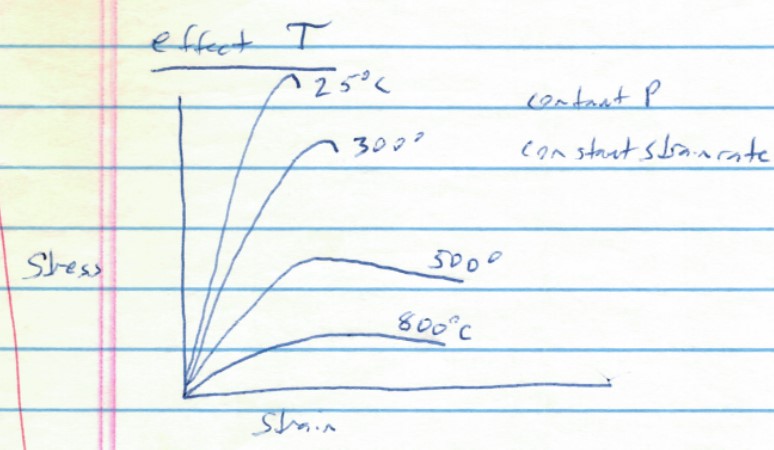 effect T
25°C
contant P
300°
constant strain rate
Stress
500°
800°C
Strain